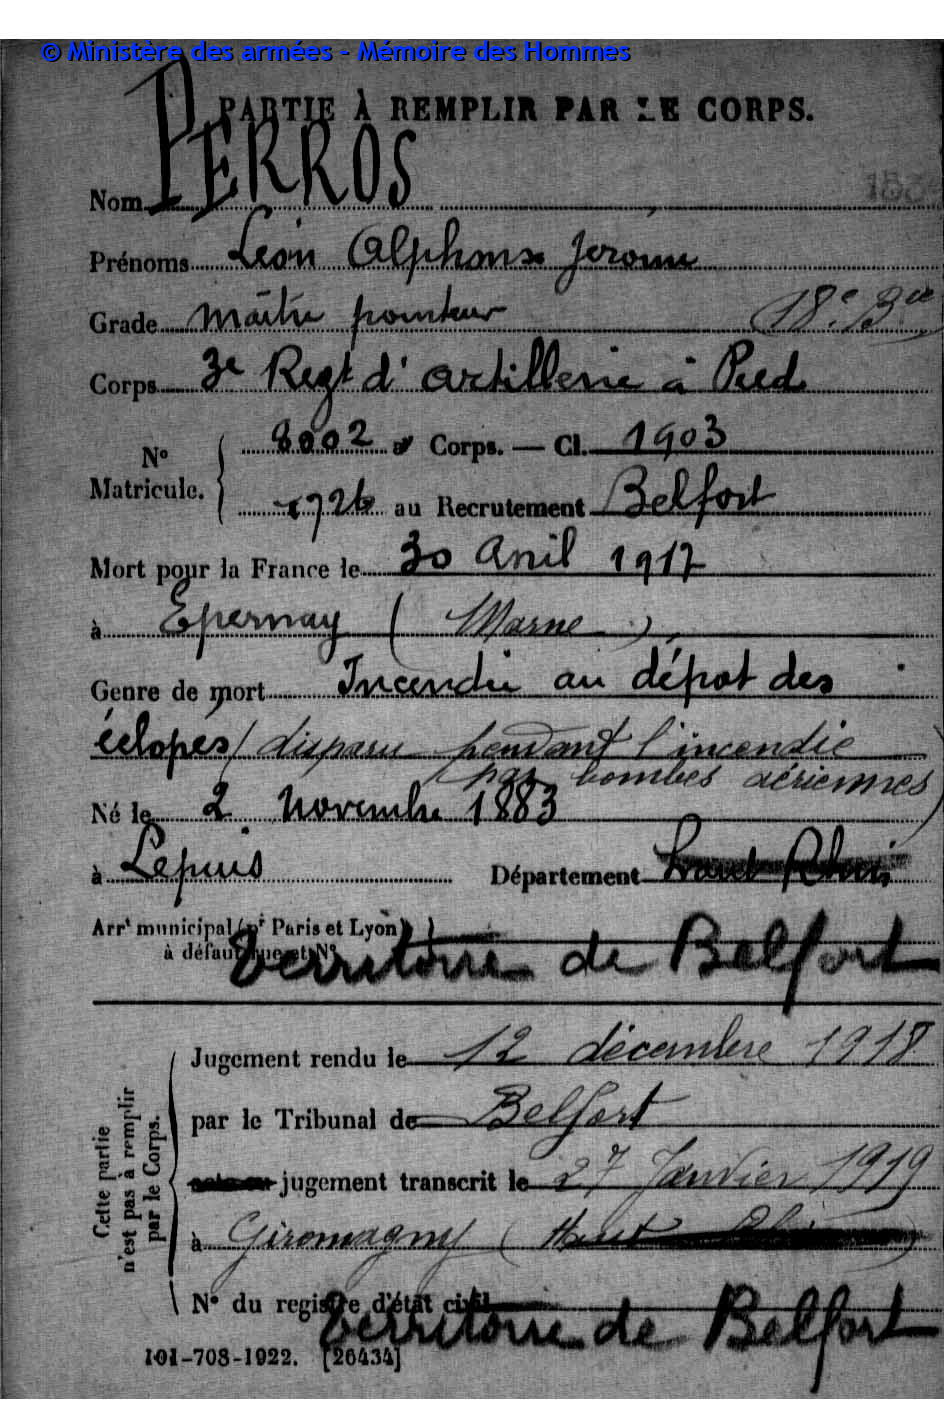 © Ministère des armées - Mémoire des Hommes
PARTIE À REMPLIR PAR LE CORPS.
Nom PERROS
183
Prénoms Léon Alphonse Jerome
Grade Maître pointeur (18e Bie)
Corps 3e Regt d'artillerie à Pied
N° Matricule.
8002 au Corps. — Cl. 1903
1726 au Recrutement Belfort
Mort pour la France le 30 Avril 1917
à Epernay (Marne),
Genre de mort Incendie au dépot des
éclopés (disparu pendant l'incendie
par bombes aériennes)
Né le 2 Novembre 1883
à Lepuis Département Haut Rhin
Arrt municipal (pr Paris et Lyon)
à défaut rue et N°
Territoire de Belfort
Cette partie n'est pas à remplir par le Corps.
Jugement rendu le 12 décembre 1918
par le Tribunal de Belfort
acte ou jugement transcrit le 27 Janvier 1919
à Giromagny (Haut Rhin)
N° du registre d'état civil
Territoire de Belfort
101-708-1922. [26434]